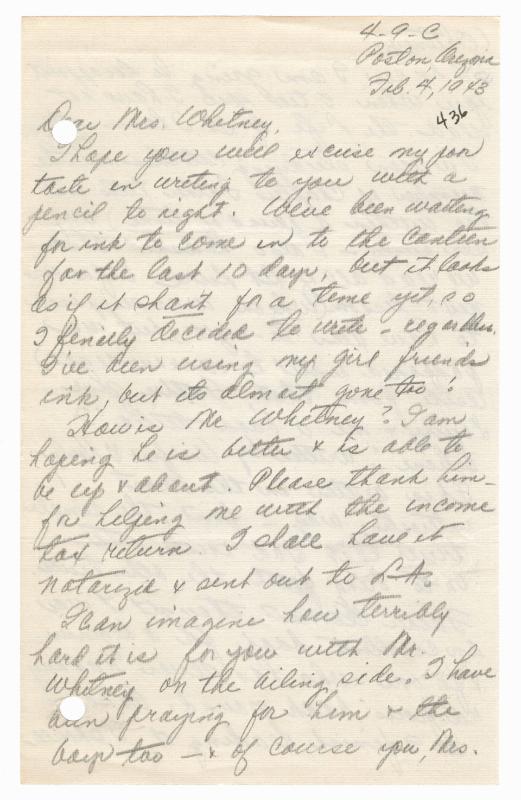 4-9-C
Poston, Arizona
Feb. 4, 1943
436
Dear Mrs. Whitney,
I hope you will excuse my poor
taste in writing to you with a
pencil to night. We've been waiting
for ink to come in to the canteen
for the last 10 days, but it looks
as if it shan't for a time yet, so
I finally decided to write - regardless.
I've been using my girl friends
ink, but its almost gone too!
How is Mr. Whitney? I am
hoping he is better & is able to
be up & about. Please thank him
for helping me with the income
tax return. I shall have it
notarized & sent out to L.A.
I can imagine how terribly
hard it is for you with Mr.
Whitney on the ailing side. I have
been praying for him & the
boys too - & of course you, Mrs.